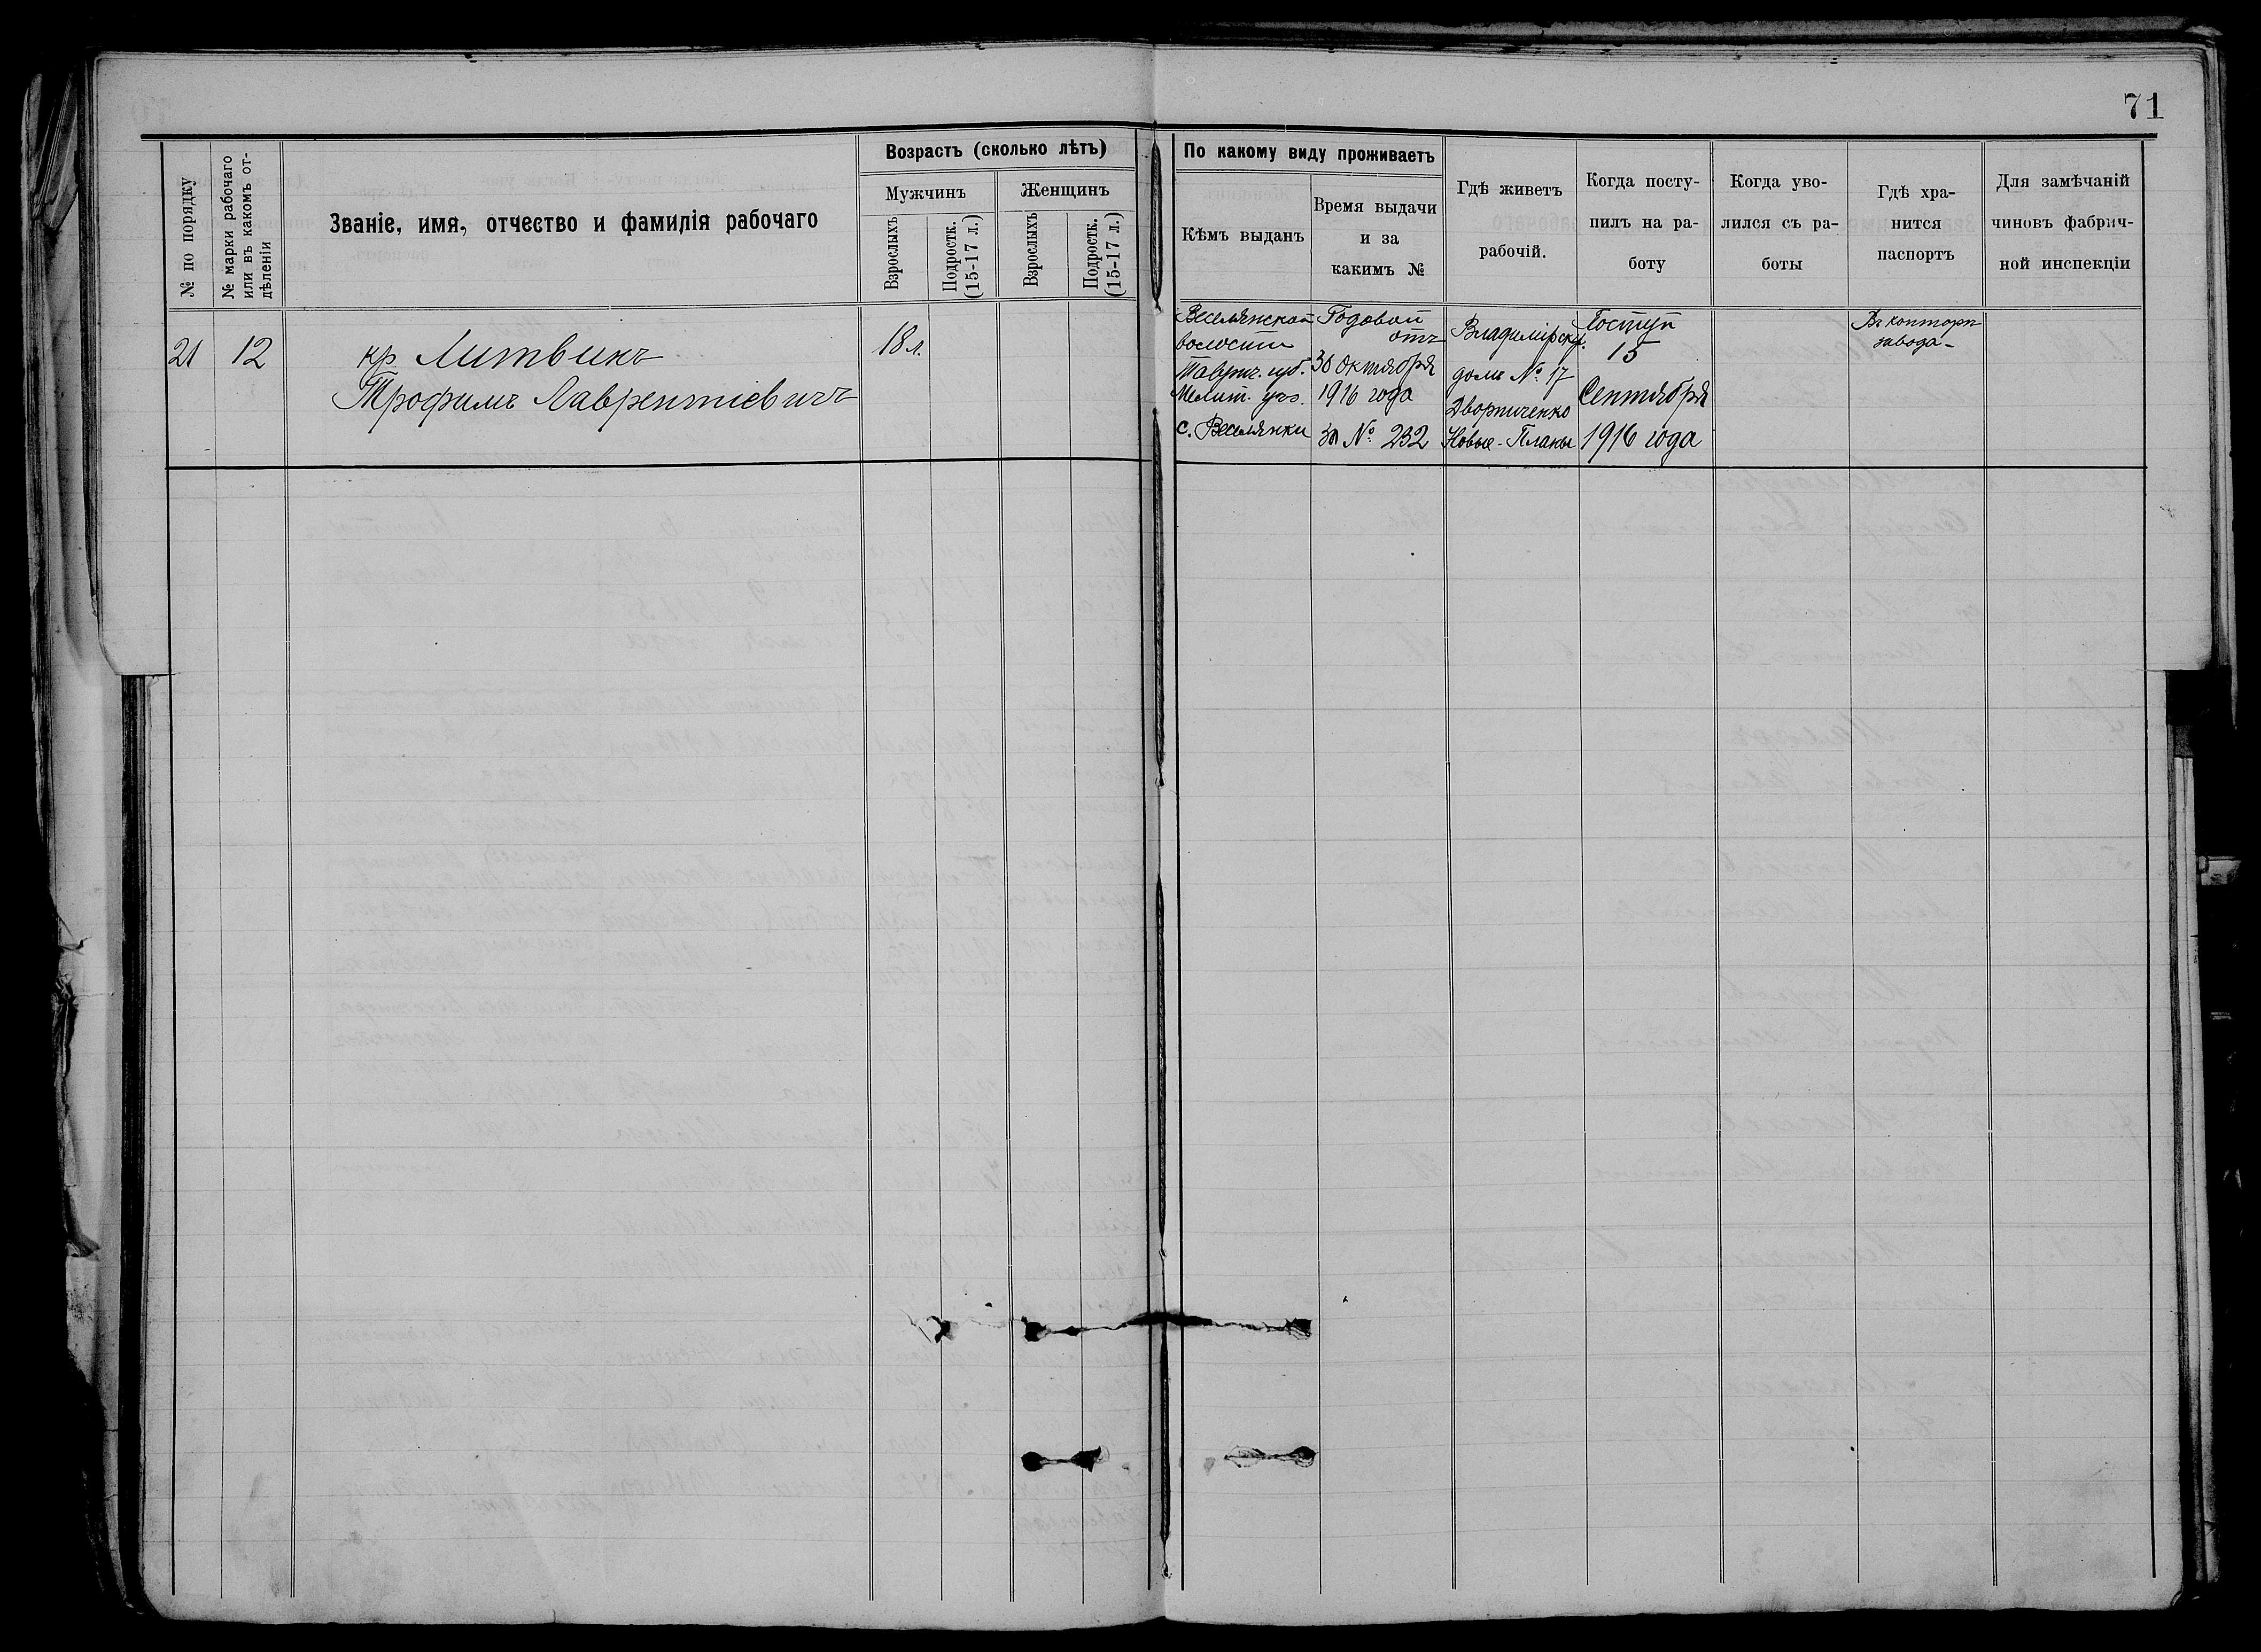 71
№ по порядку
№ марки рабочаго
или въ какомъ от-
дѣленіи
Званіе, имя, отчество и фамилія рабочаго
Возрастъ (сколько лѣтъ)
Мужчинъ
Женщинъ
Взрослыхъ
Подростк.
(15-17 л.)
Взрослыхъ
Подростк.
(15-17 л.)
По какому виду проживаетъ
Кѣмъ выданъ
Время выдачи
и за
какимъ №
Гдѣ живетъ
рабочій.
Когда посту-
пилъ на ра-
боту
Когда уво-
лился съ ра-
боты
Гдѣ хра-
нится
паспортъ
Для замѣчаній
чиновъ фабрич-
ной инспекціи
21
12
кр. Литвикъ
Трофимъ Лаврентіевичъ
18 л.
Веселянской
волости
Таврич. губ.
Мелит. уѣз.
с. Веселянки
Годовой
отъ
30 октября
1916 года
за № 232
Владимірская.
домъ № 17
Дворниченко
Новые-Планы
Поступ
15
Сентября
1916 года
Въ конторѣ
завода-